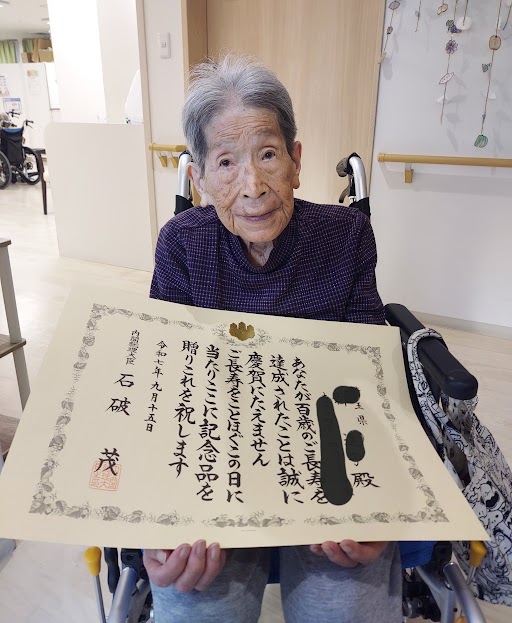 県
殿
あなたが百歳のご長寿を
達成されたことは誠に
慶賀にたえません
ご長寿をことほぐこの日に
当たりここに記念品を
贈りこれを祝します
令和七年九月十五日
内閣総理大臣 石破 茂